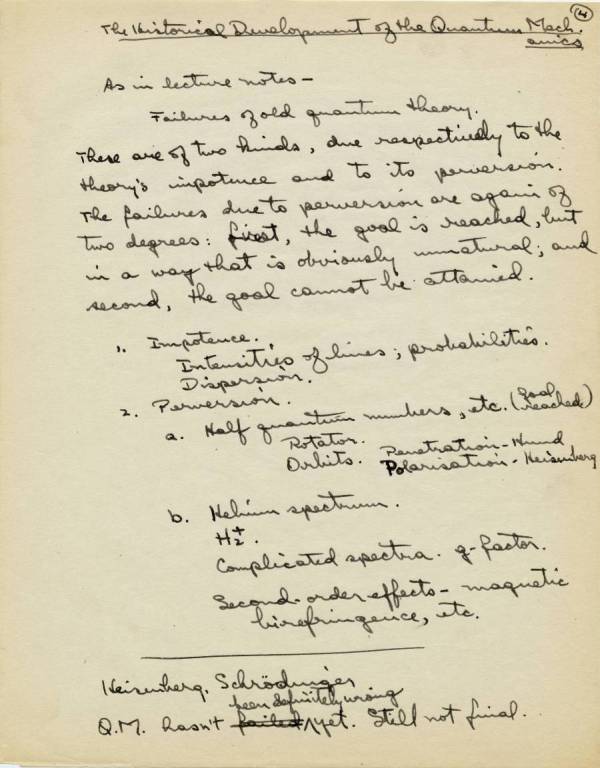 4
The Historical Development of the Quantum Mech-
anics
As in lecture notes –
Failures of old quantum theory.
These are of two kinds, due respectively to the
theory's impotence and to its perversion.
The failures due to perversion are again of
two degrees: first, the goal is reached, but
in a way that is obviously unnatural; and
second, the goal cannot be attained.
1. Impotence.
Intensities of lines; probabilities.
Dispersion.
2. Perversion.
a. Half quantum numbers, etc. (goal reached)
Rotator.
Orbits. Penetration – Hund
Polarisation – Heisenberg
b. Helium spectrum.
H₂⁺.
Complicated spectra. g-factor.
Second-order effects – magnetic
birefringence, etc.
Heisenberg. Schrödinger
been definitely wrong
Q.M. hasn't failed yet. Still not final.